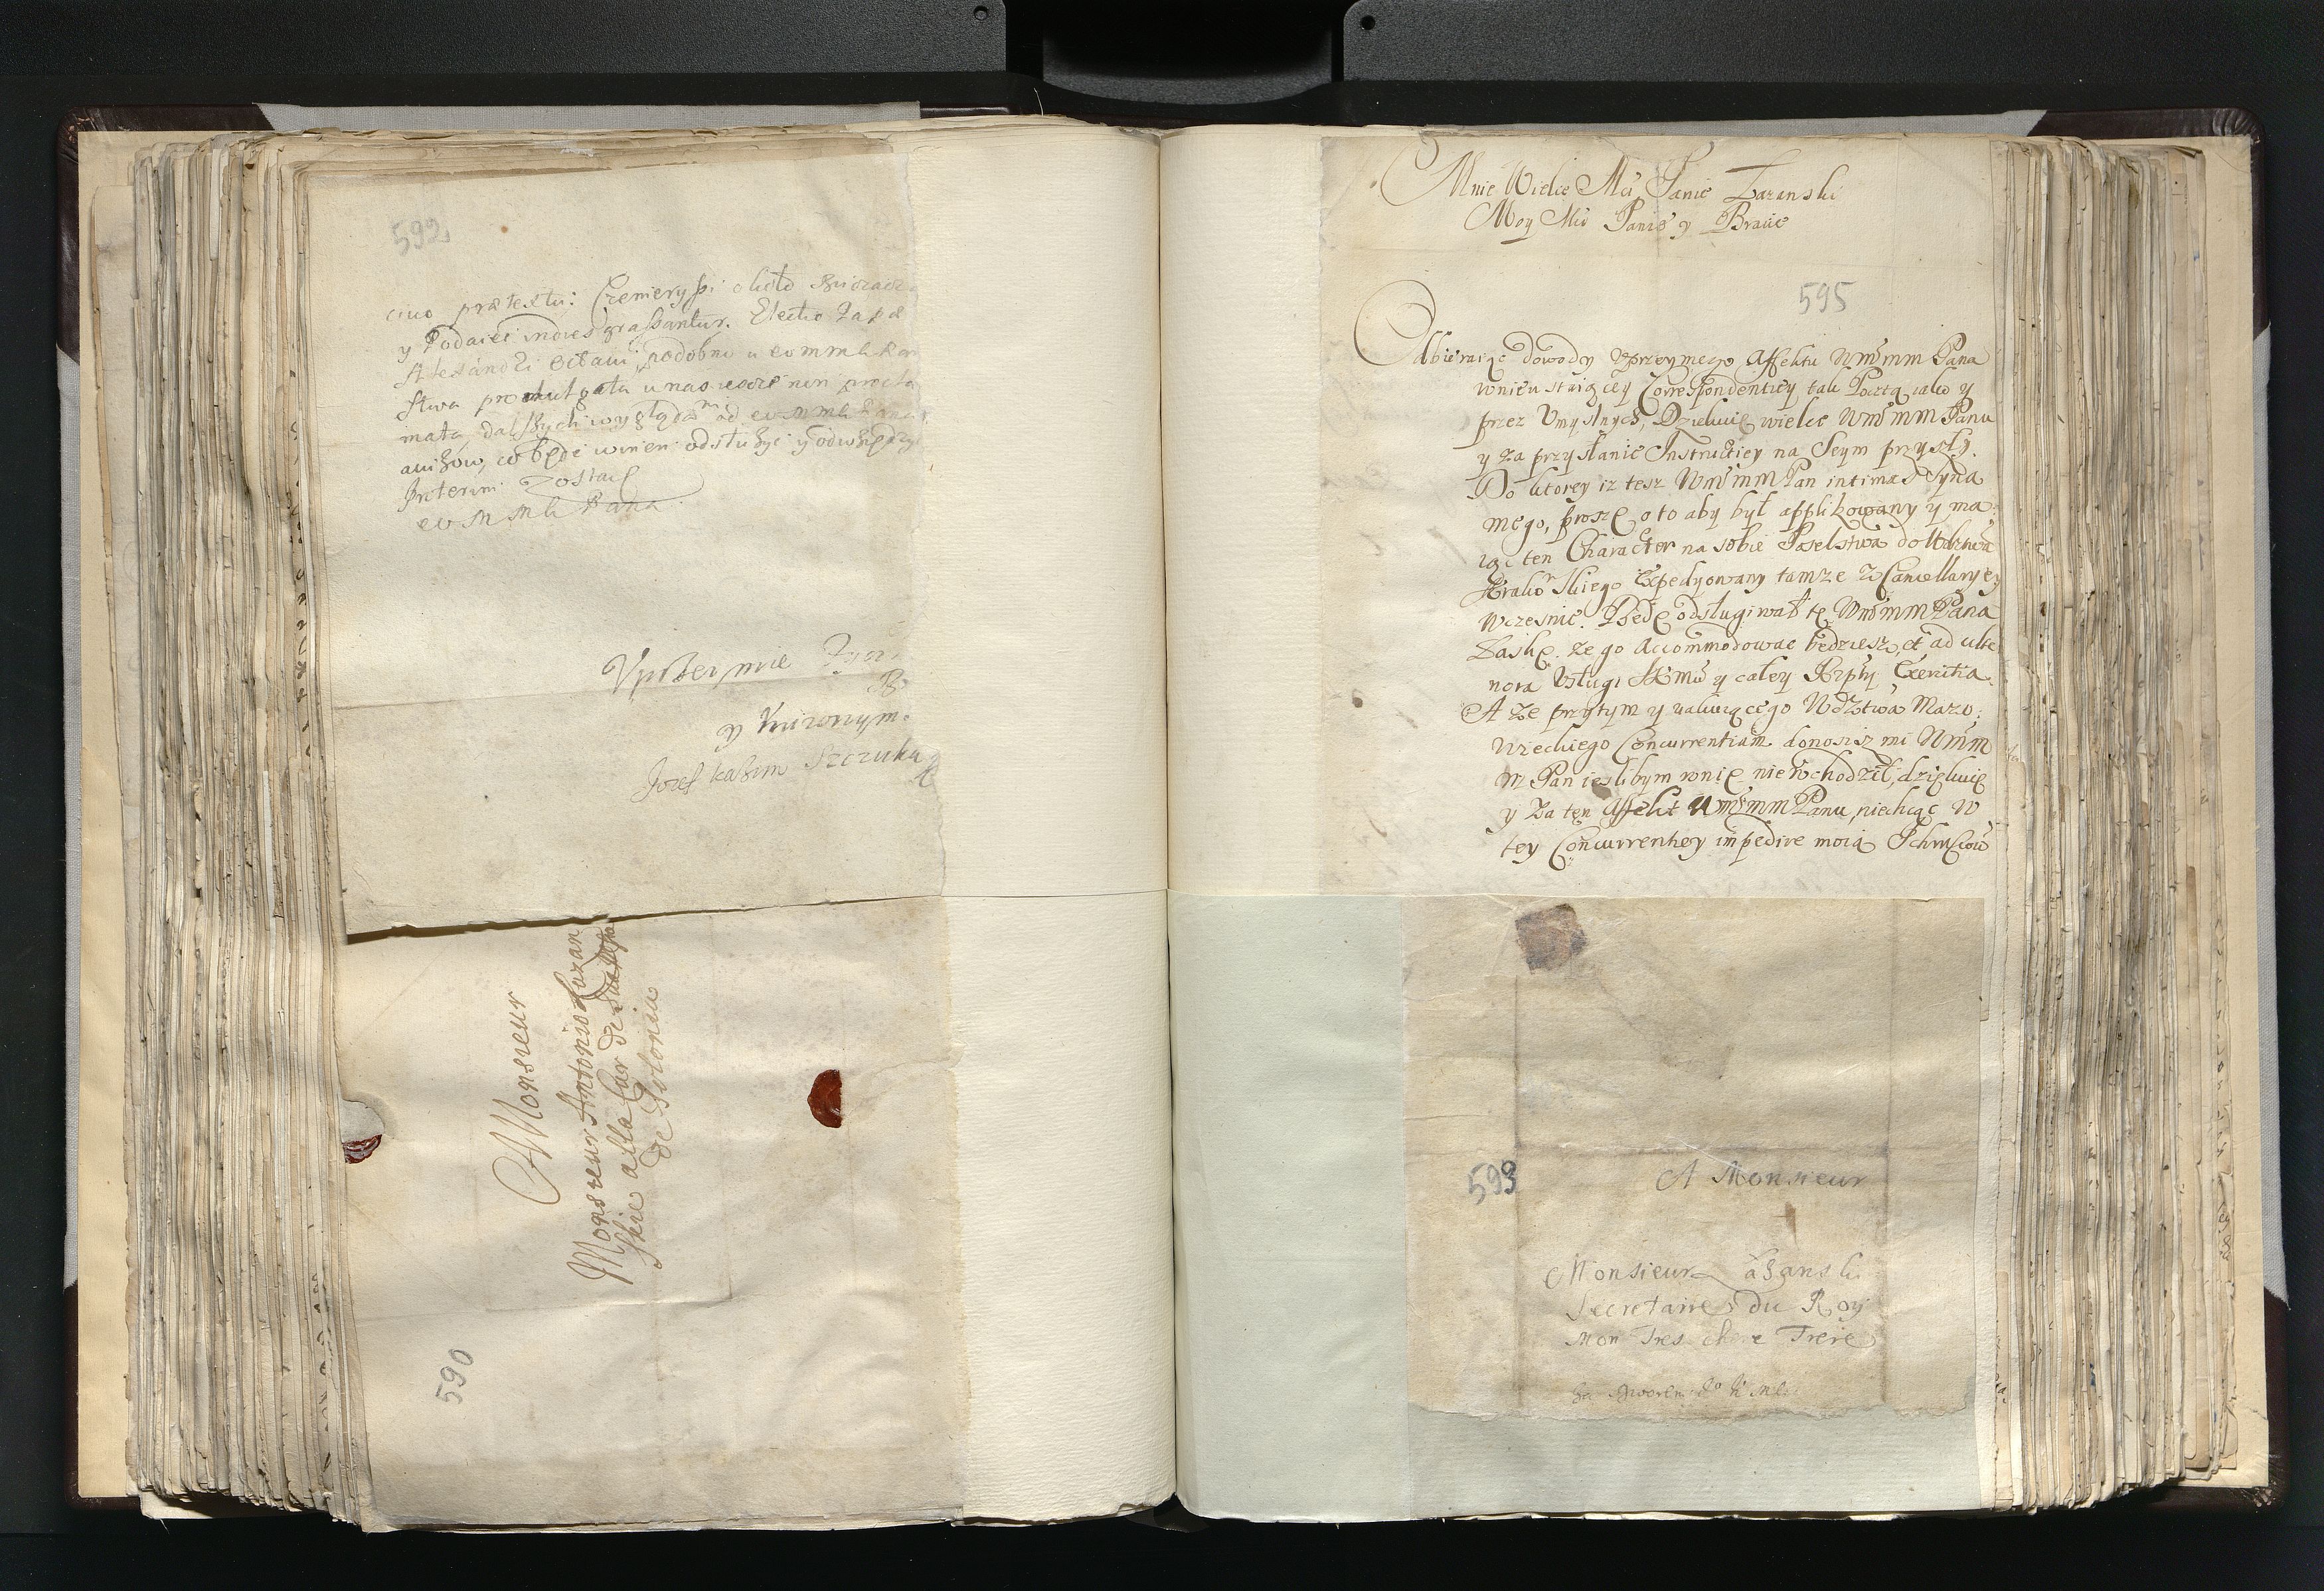 592
ciuo prætextu: Czemeryſsi około
y Podaiec indies graſsantur. Electio Papæ
Alexandri Octaui podobno u
ſtwa promulgata u nas iescze non procla
mata, dalſzych wyglądam od
auizow, co będę winien odsłużyć y odwdzięczyć
Interim Zostaię
Pana
Vprzeymie Zycz
B
y
Jozef Kazim Szczuka
A Monsieur
Monsieur Antonio Lazan
skie alla Cur de Sua
de Polonia
590
Mnie Wielce Mći Panie Łazanski
Moy Mći Panie y Bracie
595
Odbieraiąc dowody vprzeymego Affektu WmmPana
wnieustaiącey Correspondentiey tak Pocztą iako y
przez Vmyslnych, Dziekuię wielce WmmPanu
y za przysłanie Instructiey na Seym przyszły.
Do ktorey iz tesz WmmPan intimas Syna
mego, proszę o to aby był applikowany y ma:
iąc ten Character na sobie Poselstwa do Wdztwa
Krakoskiego Expedyowany tamze z Cancellaryey
wczesnie. Będę odsługiwał tę WmmPana
Łaskę. ze go Accommodowac będziesz, et ad ulte
riora Vsługi y całey Rzpty Exercitia.
A ze przytym y vakuiącego Wdztwa Mazo:
wieckiego Concurrentiam donosisz mi Wmm
m Pan ieslibym wnię nie wchodził, dziękuię
y za ten Affekt WmmPanu, niechcąc w
tey Concurrentiey impedire moią
593
A Monsieur
Monsieur Łazanski
Secretaire du Roy
Mon Tres chere Frere